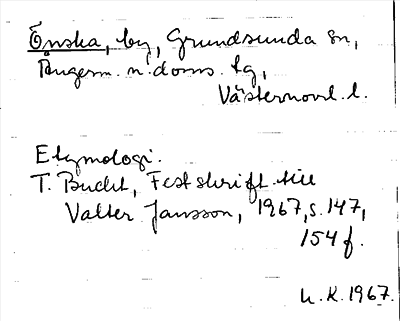 Önska, by, Grundsunda sn,
Ångerm. n. doms. tg,
Västernorrl. l.
Etymologi.
T. Bucht, Festskrift till
Valter Jansson, 1967, s. 147,
154 f.
h.K. 1967.